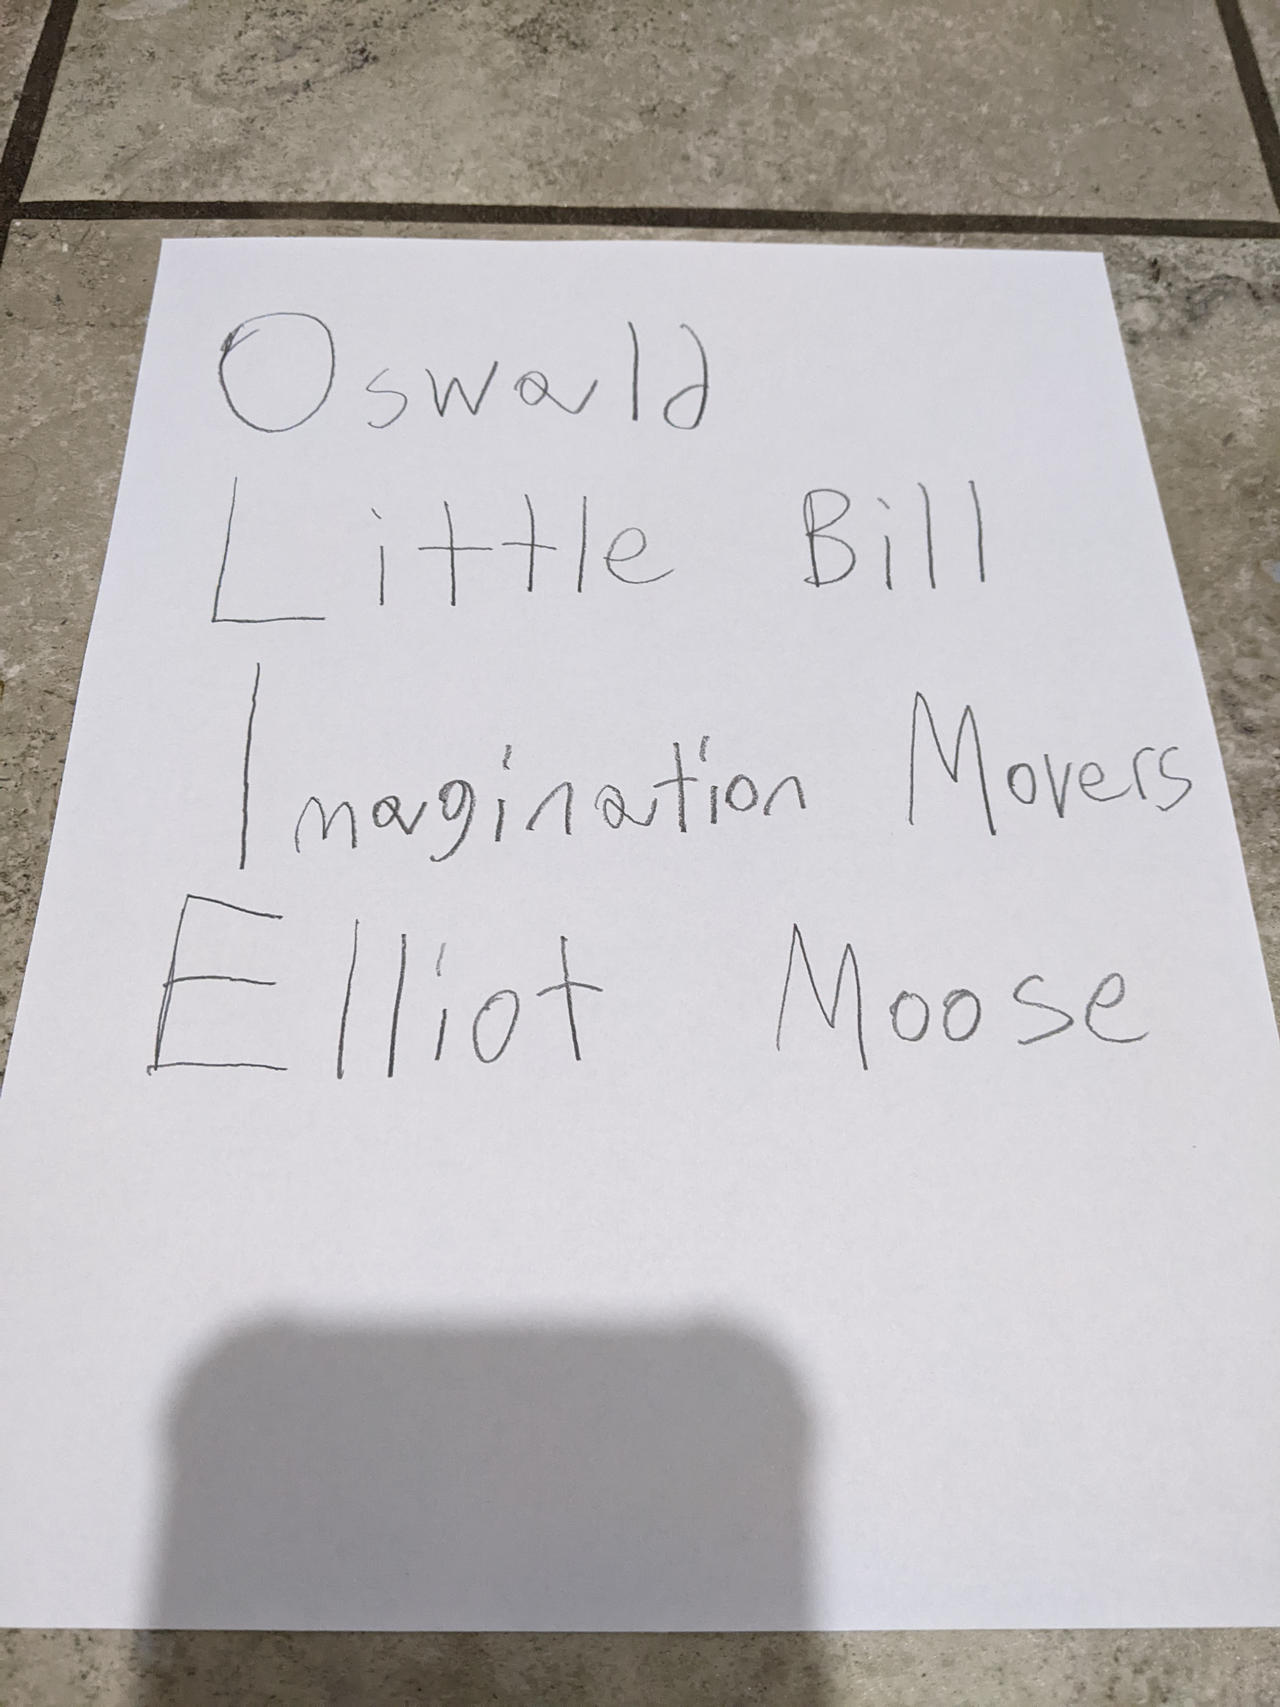 Oswald
Little Bill
Imagination Movers
Elliot Moose